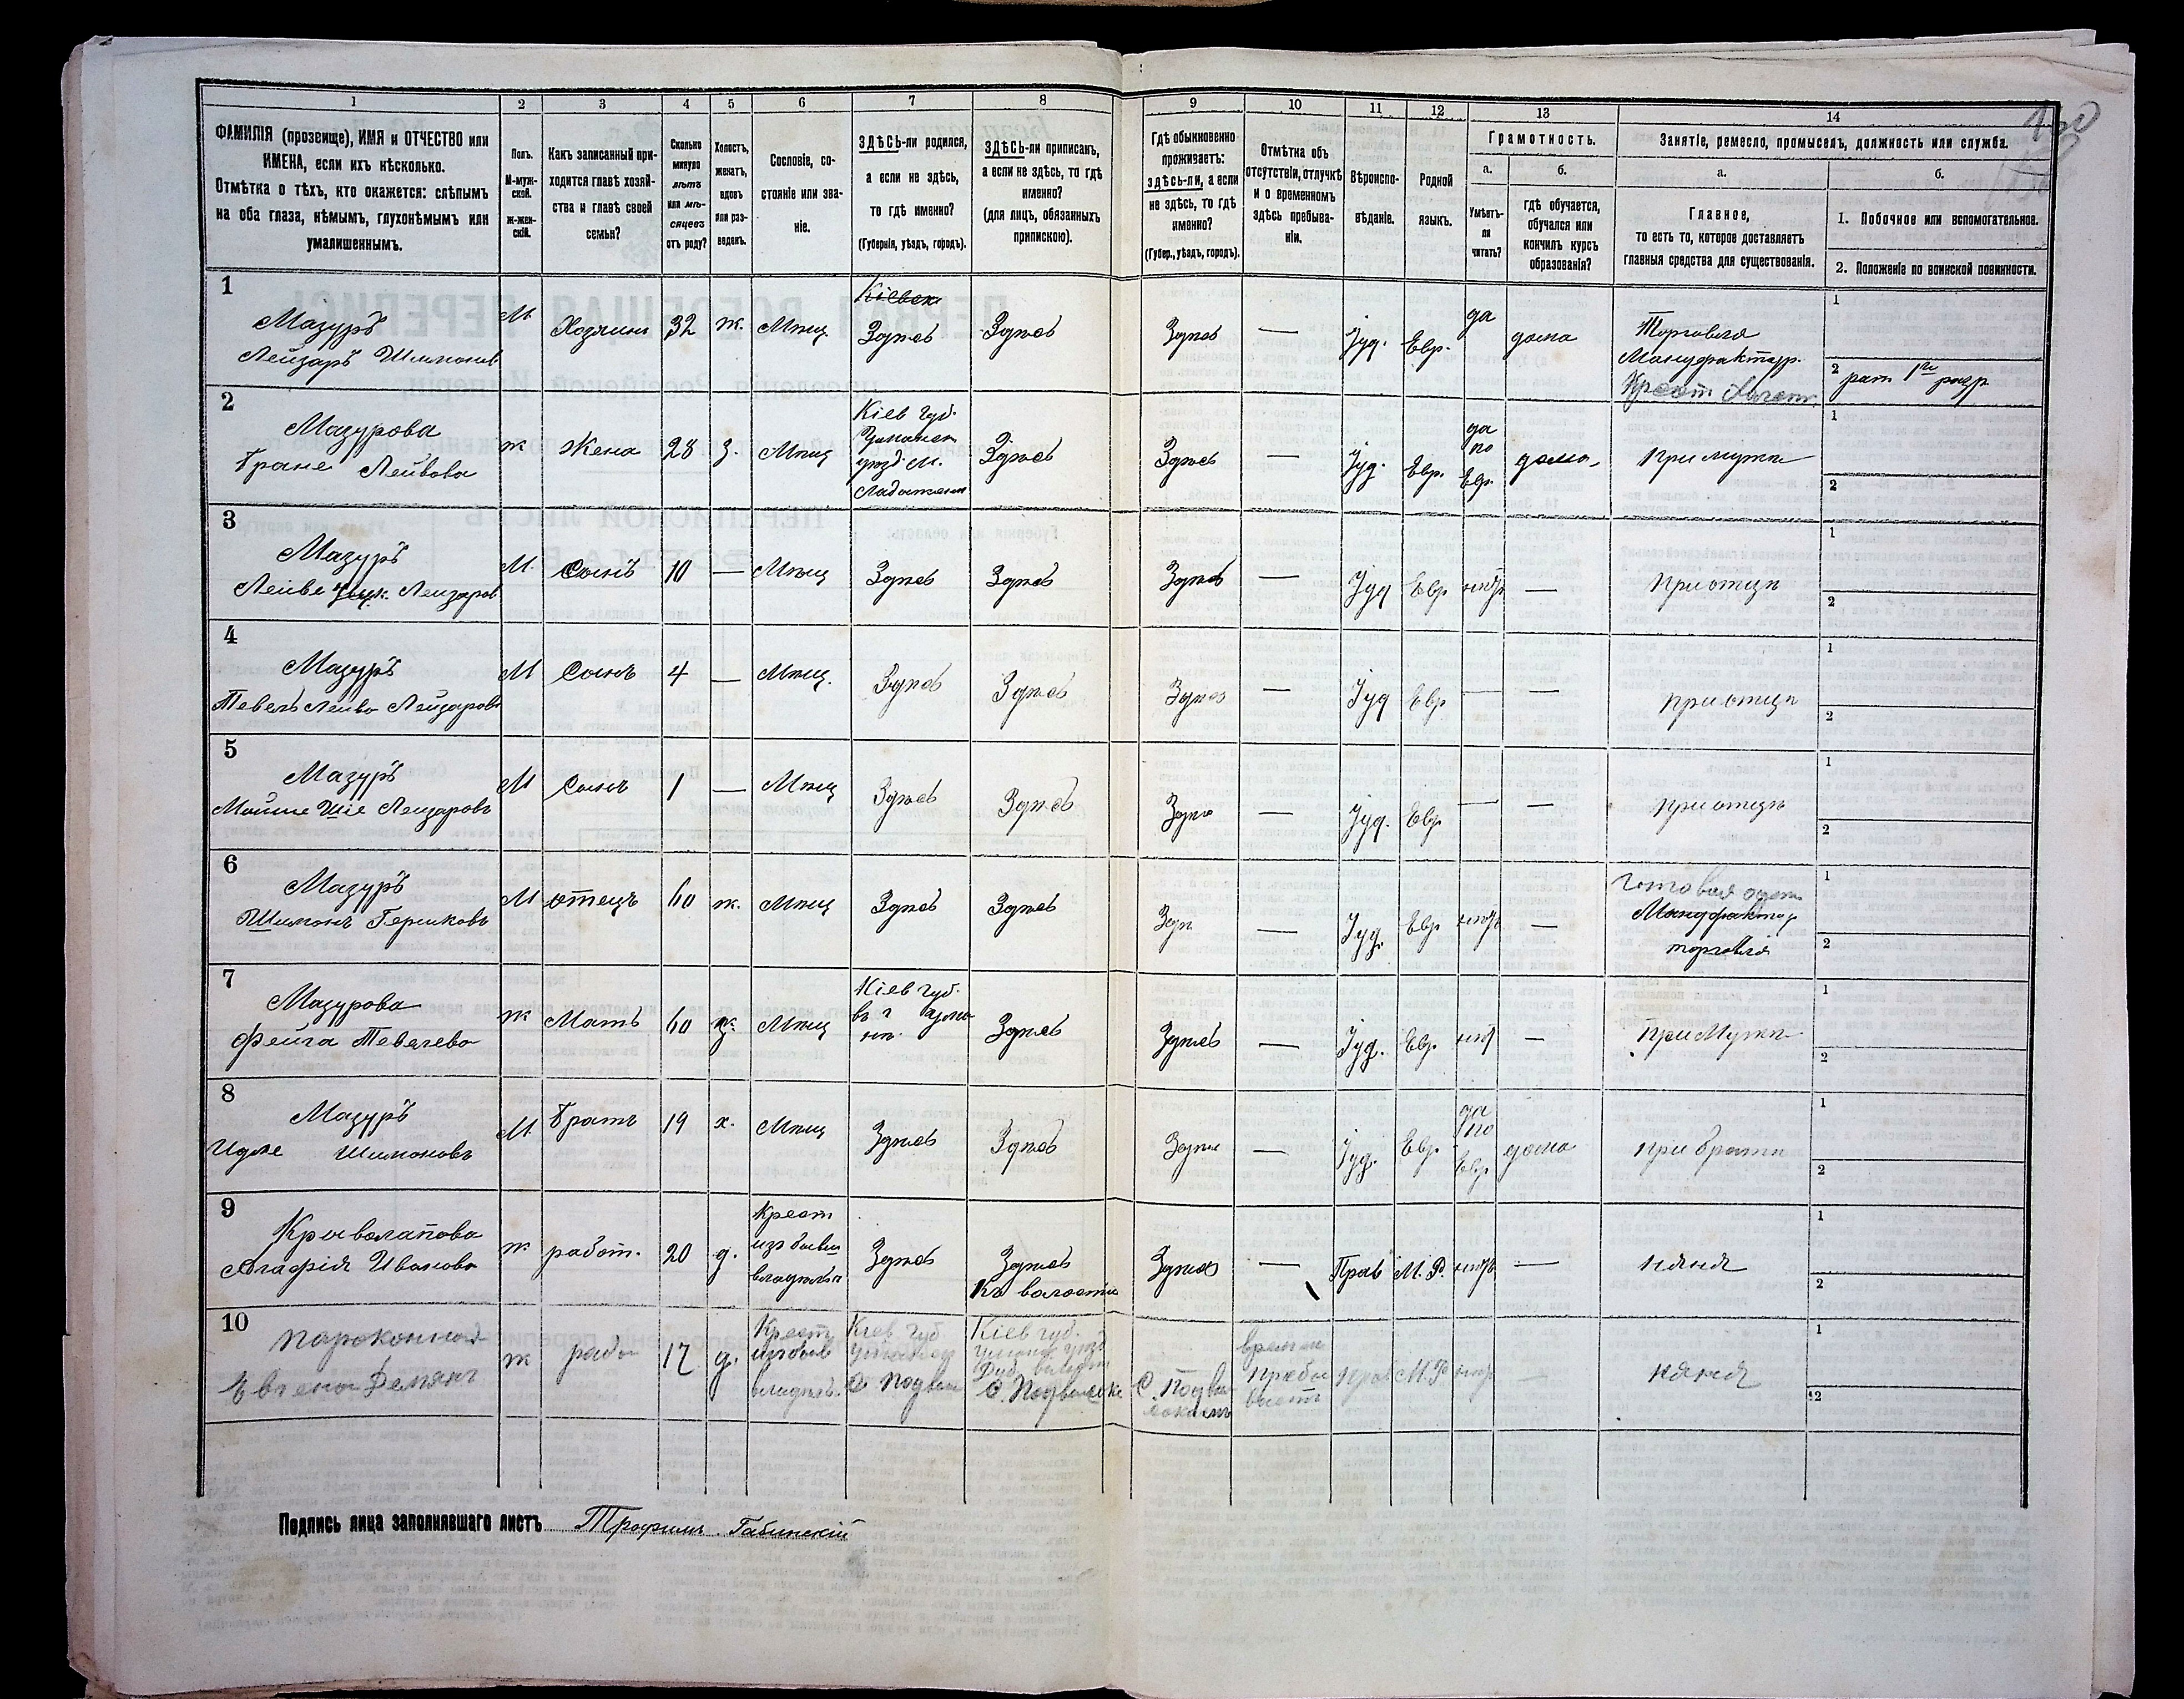 1 2 3 4 5 6 7 8 9 10 11 12 13 14
ФАМИЛІЯ (прозвище), ИМЯ и ОТЧЕСТВО или
ИМЕНА, если ихъ нѣсколько.
Отмѣтка о тѣхъ, кто окажется: слѣпымъ
на оба глаза, нѣмымъ, глухонѣмымъ или
умалишеннымъ.
Полъ.
М-муж-
ской.
Ж-жен-
скій.
Какъ записанный при-
ходится главѣ хозяй-
ства и главѣ своей
семьи?
Сколько
минуло
лѣтъ
или мѣ-
сяцевъ
отъ роду?
Холостъ,
женатъ,
вдовъ
или раз-
веденъ.
Сословіе, со-
стояніе или зва-
ніе.
ЗДѢСЬ-ли родился,
а если не здѣсь,
то гдѣ именно?
(Губернія, уѣздъ, городъ).
ЗДѢСЬ-ли приписанъ,
а если не здѣсь, то гдѣ
именно?
(для лицъ, обязанныхъ
припискою).
Гдѣ обыкновенно
проживаетъ:
здѣсь-ли, а если
не здѣсь, то гдѣ
именно?
(Губер., уѣздъ, городъ).
Отмѣтка объ
отсутствіи, отлучкѣ
и о временномъ
здѣсь пребыва-
ніи.
Вѣроиспо-
вѣданіе.
Родной
языкъ.
Грамотность.
а.
Умѣетъ-
ли
читать?
б.
гдѣ обучается,
обучался или
кончилъ курсъ
образованія?
Занятіе, ремесло, промыселъ, должность или служба.
а.
Главное,
то есть то, которое доставляетъ
главныя средства для существованія.
б.
1. Побочное или вспомогательное.
2. Положеніе по воинской повинности.
1
Мазуръ
Лейзаръ Шимоновъ
М Хозяинъ 32 ж. Мѣщ.
Кіевск
Здѣсь Здѣсь Здѣсь — Іуд. Евр. да дома
Торговля
Мануфактур.
1
2 рат 1го разр
2
Мазурова
Бране Лейбова
ж Жена 28 з. Мѣщ
Кіев губ.
уѣзд. м.
Здѣсь Здѣсь — Іуд. Евр.
да
по
Евр.
дома
при мужѣ
1
2
3
Мазуръ
Лейзаров
М. Сынъ 10 — Мѣщ Здѣсь Здѣсь Здѣсь — Іуд Евр нѣтъ — при отцѣ
1
2
4
Мазуръ
Лейзаровъ
М Сынъ 4 — Мѣщ. Здѣсь Здѣсь Здѣсь — Іуд Евр — — при отцѣ
1
2
5
Мазуръ
Мойше Шіе Лейзаровъ
М Сынъ 1 — Мѣщ Здѣсь Здѣсь Здѣсь — Іуд. Евр — — при отцѣ
1
2
6
Мазуръ
Шимонъ Гершковъ
М отецъ 60 ж. Мѣщ Здѣсь Здѣсь Здѣ — Іуд. Евр нѣтъ —
Мануфактур
торговля
1
2
7
Мазурова
Фейга Тевелева
ж Мать 60 Мѣщ
Кіев губ.
Здѣсь Здѣсь — Іуд. Евр. нѣт — при Мужѣ
1
2
8
Мазуръ
Шимоновъ
М. братъ 19 х. Мѣщ Здѣсь Здѣсь Здѣс — Іуд. Евр.
да
по
Евр.
дома при братѣ
1
2
9
Агафія Иванова
ж работ. 20 д.
Крест
изъ бывш
владѣл
Здѣсь Здѣсь
Къ волости
Здѣсь — Прав М.Р. нѣтъ — няня
1
2
10
ж рабо 17 д.
Крест
из бывш
владѣл.
Кіев губ
Кіев губ.
времен
пребы
ваетъ
М.Р — няня
1
2
Подпись лица заполнявшаго листъ Трофимъ Габинскій